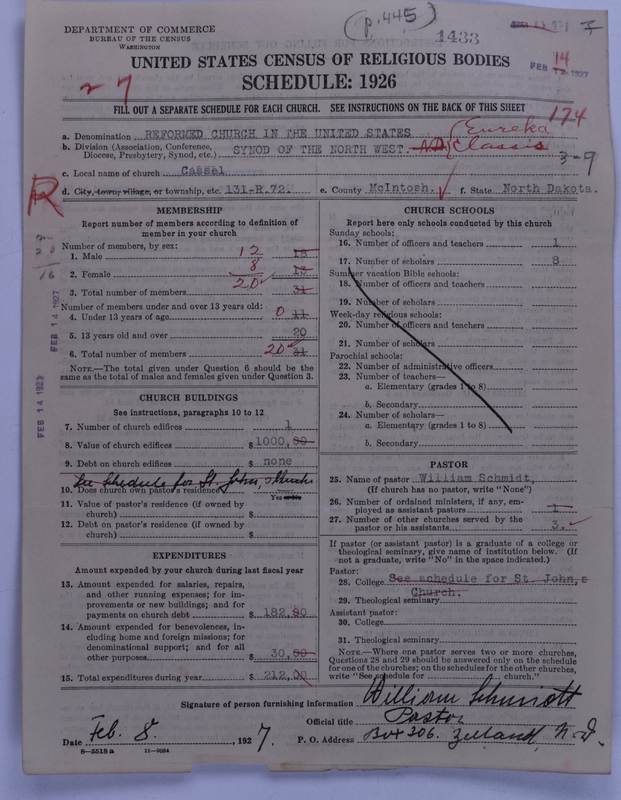 (p. 445)
1433
DEPARTMENT OF COMMERCE
BUREAU OF THE CENSUS
WASHINGTON
UNITED STATES CENSUS OF RELIGIOUS BODIES
SCHEDULE: 1926
FEB 14 1927
FILL OUT A SEPARATE SCHEDULE FOR EACH CHURCH. SEE INSTRUCTIONS ON THE BACK OF THIS SHEET
174
a. Denomination REFORMED CHURCH IN THE UNITED STATES
b. Division (Association, Conference, Diocese, Presbytery, Synod, etc.) SYNOD OF THE NORTH WEST. N.D. (Eureka Classis
3-9
c. Local name of church Cassel
R
d. City, town, village, or township, etc. 131-R.72. e. County McIntosh. f. State North Dakota.
MEMBERSHIP
Report number of members according to definition of member in your church
Number of members, by sex:
1. Male 12 18
2. Female 8 13
3. Total number of members 20 31
Number of members under and over 13 years old:
4. Under 13 years of age 0 11
5. 13 years old and over 20
6. Total number of members 20 31
NOTE.—The total given under Question 6 should be the same as the total of males and females given under Question 3.
FEB 14 1927
FEB 14 1927
CHURCH BUILDINGS
See instructions, paragraphs 10 to 12
7. Number of church edifices 1
8. Value of church edifices $ 1000,00
9. Debt on church edifices $ none
See Schedule for St. Johns, Church
10. Does church own pastor's residence Yes or No
11. Value of pastor's residence (if owned by church) $
12. Debt on pastor's residence (if owned by church) $
EXPENDITURES
Amount expended by your church during last fiscal year
13. Amount expended for salaries, repairs, and other running expenses; for improvements or new buildings; and for payments on church debt $ 182,00
14. Amount expended for benevolences, including home and foreign missions; for denominational support; and for all other purposes $ 30,00
15. Total expenditures during year $ 212,00
CHURCH SCHOOLS
Report here only schools conducted by this church
Sunday schools:
16. Number of officers and teachers 1
17. Number of scholars 8
Summer vacation Bible schools:
18. Number of officers and teachers
19. Number of scholars
Week-day religious schools:
20. Number of officers and teachers
21. Number of scholars
Parochial schools:
22. Number of administrative officers
23. Number of teachers—
a. Elementary (grades 1 to 8)
b. Secondary
24. Number of scholars—
a. Elementary (grades 1 to 8)
b. Secondary
PASTOR
25. Name of pastor William Schmidt,
(If church has no pastor, write "None")
26. Number of ordained ministers, if any, employed as assistant pastors 1
27. Number of other churches served by the pastor or his assistants 3.
If pastor (or assistant pastor) is a graduate of a college or theological seminary, give name of institution below. (If not a graduate, write "No" in the space indicated.)
Pastor:
28. College See schedule for St. John,s Church.
29. Theological seminary
Assistant pastor:
30. College
31. Theological seminary
NOTE.—Where one pastor serves two or more churches, Questions 28 and 29 should be answered only on the schedule for one of the churches; on the schedules for the other churches, write "See schedule for church."
Signature of person furnishing information William Schmidt
Official title Pastor
Date Feb. 8. , 1927. P. O. Address Box 306. Zeeland, N.D.
8-5518 a 11-9064